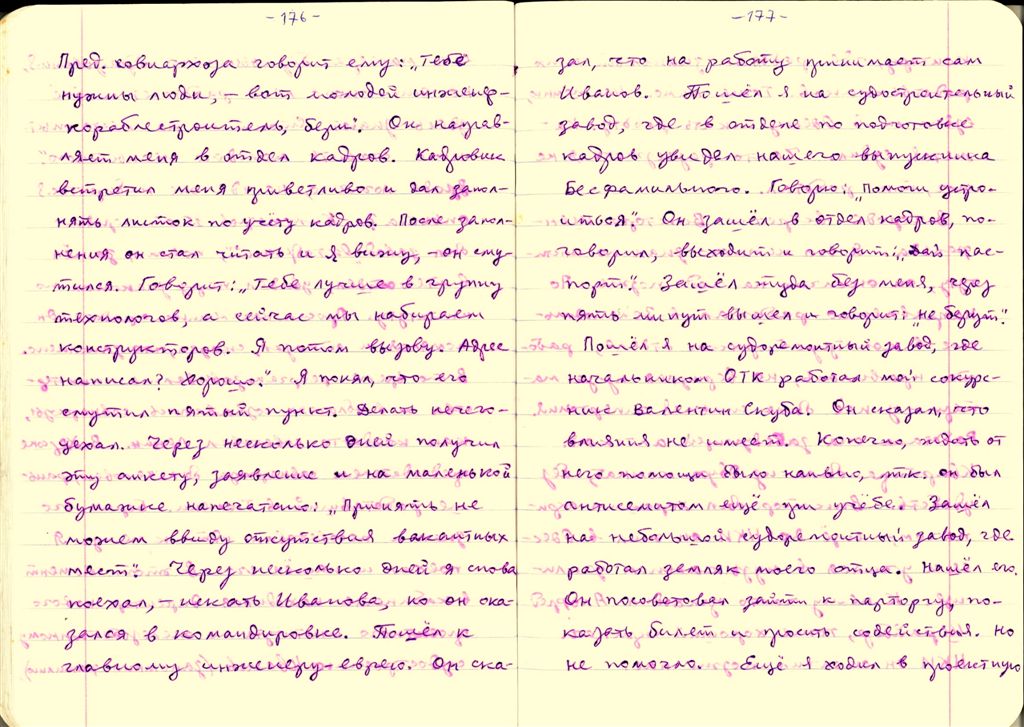 - 176 -
Пред. совнархоза говорит ему: „Тебе
нужны люди, – вот молодой инженер-
кораблестроитель, бери“. Он направ-
ляет меня в отдел кадров. Кадровик
встретил меня приветливо и дал запол-
нять листок по учёту кадров. После запол-
нения он стал читать и я вижу, – он сму-
тился. Говорит: „Тебе лучше в группу
технологов, а сейчас мы набираем
конструкторов. Я потом вызову. Адрес
написал? Хорошо.“ Я понял, что его
смутил пятый пункт. Делать нечего –
уехал. Через несколько дней получил
эту анкету, заявление и на маленькой
бумажке напечатано: „Принять не
можем ввиду отсутствия вакантных
мест“. Через несколько дней я снова
поехал, – искать Иванова, но он ока-
зался в командировке. Пошёл к
главному инженеру-еврею. Он ска-
- 177 -
зал, что на работу принимает сам
Иванов. Пошёл я на судостроительный
завод, где в отделе по подготовке
кадров увидел нашего выпускника
Бесфамильного. Говорю: „Помоги устро-
иться“. Он зашёл в отдел кадров, по-
говорил, выходит и говорит: „Дай пас-
порт“. Зашёл туда без меня, через
пять минут вышел и говорит: „не берут“.
Пошёл я на судоремонтный завод, где
начальником ОТК работал мой сокурс-
ник Валентин Скуба. Он сказал, что
влияния не имеет. Конечно, ждать от
него помощи было наивно, т.к. он был
антисемитом ещё при учёбе. Зашёл
на небольшой судоремонтный завод, где
работал земляк моего отца. Нашёл его.
Он посоветовал зайти к парторгу, по-
казать билет и просить содействия. Но
не помогло. Ещё я ходил в проектную